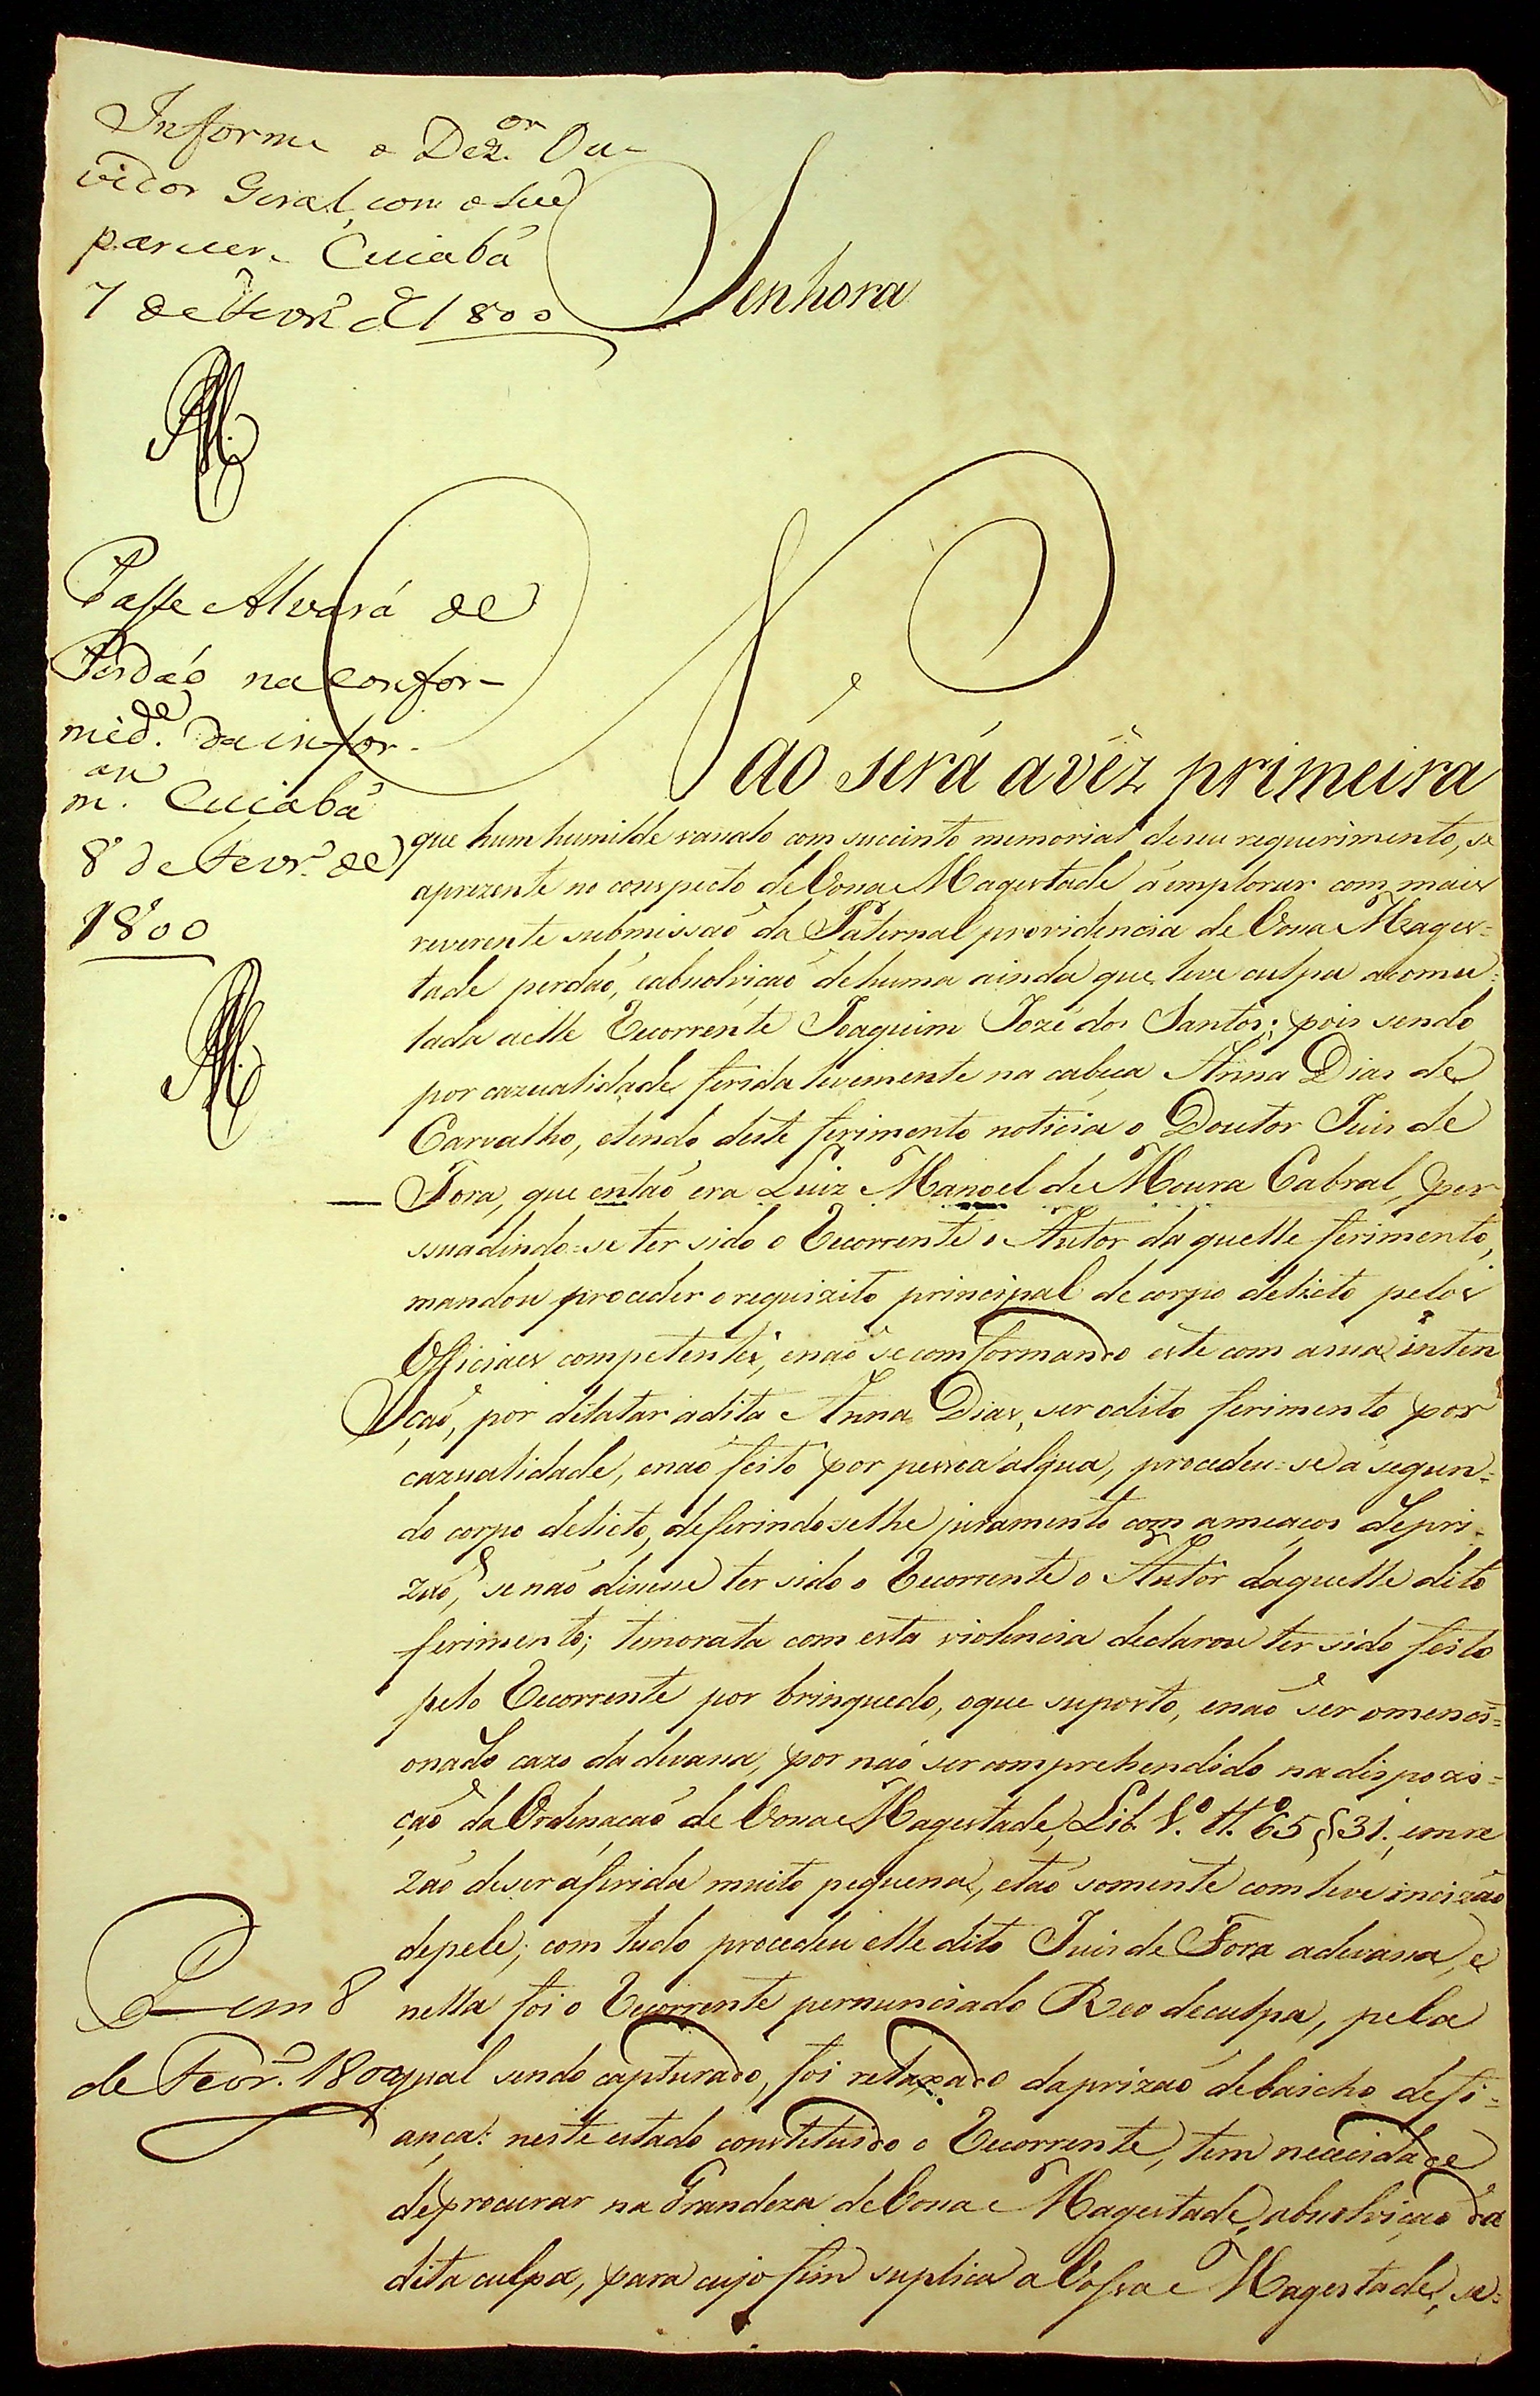 Informe o Dez.or Ou-
vidor Geral, com o seu
parecer. Cuiabá
7 de Fevr.o de 1800
Senhora
Passe Alvará de
Perdaõ na confor-
mid.de da infor-
m.am Cuiabá
8 de Fevr.o de
1800
Naõ será a vêz primeira
que hum humilde vasalo com succinto memorial de seu requerimento, se
aprezente no conspecto de Vossa Magestade á implorar com mais
reverente submissaõ da Paternal providencia de Vossa Mages=
tade perdaõ, e absolviçaõ de huma ainda que leve culpa acomu=
lada a elle Recorrente Joaquim Jozé dos Santos; pois sendo
por cazualidade ferida levemente na cabeça Anna Dias de
Carvalho, e tendo deste ferimento noticia o Doutor Juis de
Fora, que entaõ era Luiz Manoel de Moura Cabral, per
ssuadindo=se ter sido o Recorrente o Autor daquelle ferimento,
mandou proceder o requizito principal de corpo delicto pelos
Officiaes competentes, e naõ se comformando este com a sua inten
çaõ, por dilatar a dita Anna Dias, ser o dito ferimento por
cazualidade, e naõ feito por pessoa algua, procedeu=se a segun=
do corpo delicto, deferindoselhe juramento com ameaços de pri=
zaõ, se naõ dissesse ter sido o Recorrente o Autor daquelle dito
ferimento; timorata com esta violencia declarou ter sido feito
pelo Recorrente por brinquedo, o que suposto, e naõ ser o menci=
onado cazo da devassa, por naõ ser comprehendido na dispozi=
çaõ da Ordenaçaõ de Vossa Magestade, Lib. V.o tt.o 65 § 31. em re
zaõ de ser a ferida muito pequena, e taõ somente com leve incizaõ
de pele; com tudo procedeu elle dito Juis de Fora a devassa, e
nella foi o Recorrente pernunciado Reo de culpa, pela
P em 8
de Fevr.o 1800
qual sendo capturado, foi relaxado da prizaõ debaicho de fi=
ança: neste estado constituido o Recorrente, tem necessidade
de procurar na Grandeza de Vossa Magestade, absolviçaõ da
dita culpa, para cujo fim suplica a Vossa Magestade, se=